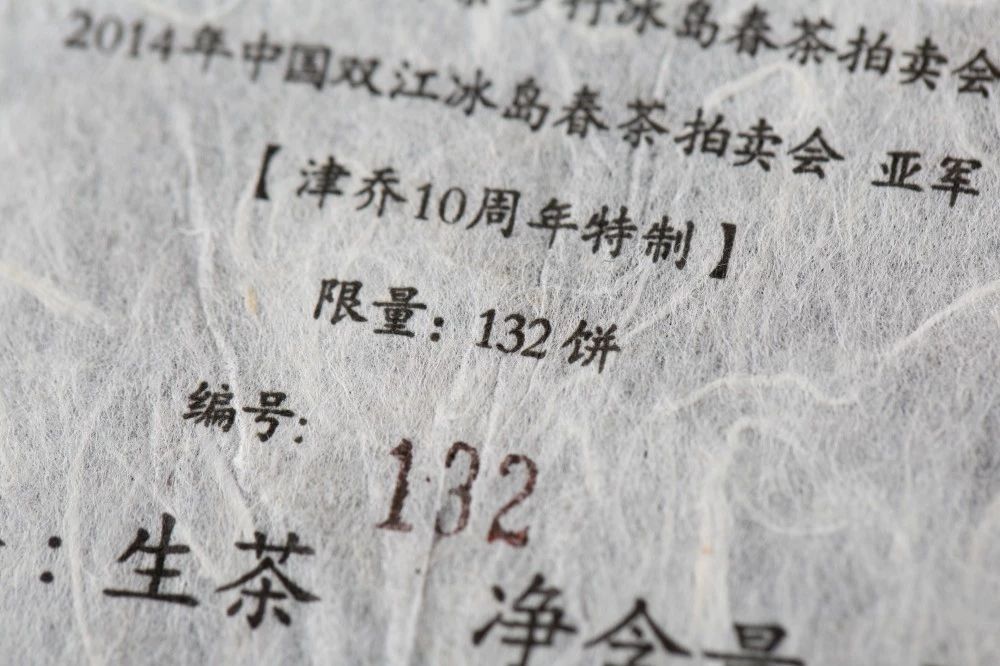 村冰岛春茶拍卖会
2014年中国双江冰岛春茶拍卖会 亚军
【津乔10周年特制】
限量：132饼
编号：132
：生茶 净含量